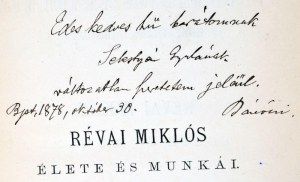 Édes kedves hű barátomnak
változatlan szeretetem jeléül.
Bpest, 1878, október 30.
Bánóczi
RÉVAI MIKLÓS
ÉLETE ÉS MUNKÁI.